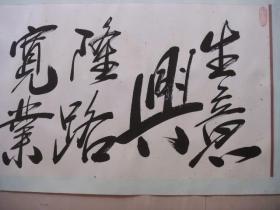 生意
興
隆路
寬業